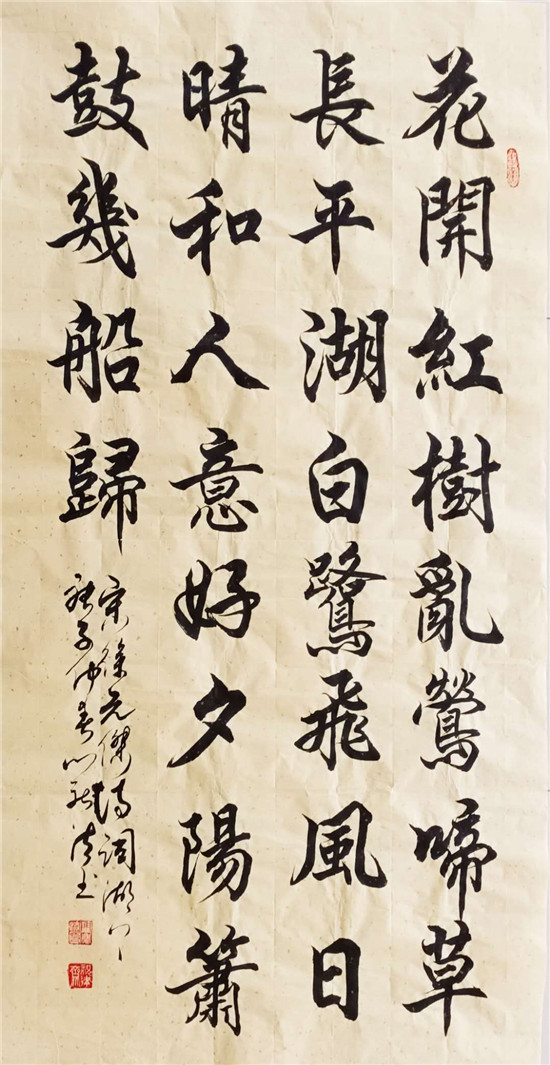 花開紅樹亂鶯啼草
長平湖白鷺飛風日
晴和人意好夕陽簫
鼓幾船歸
宋徐元傑詩詞湖上
庚子仲春